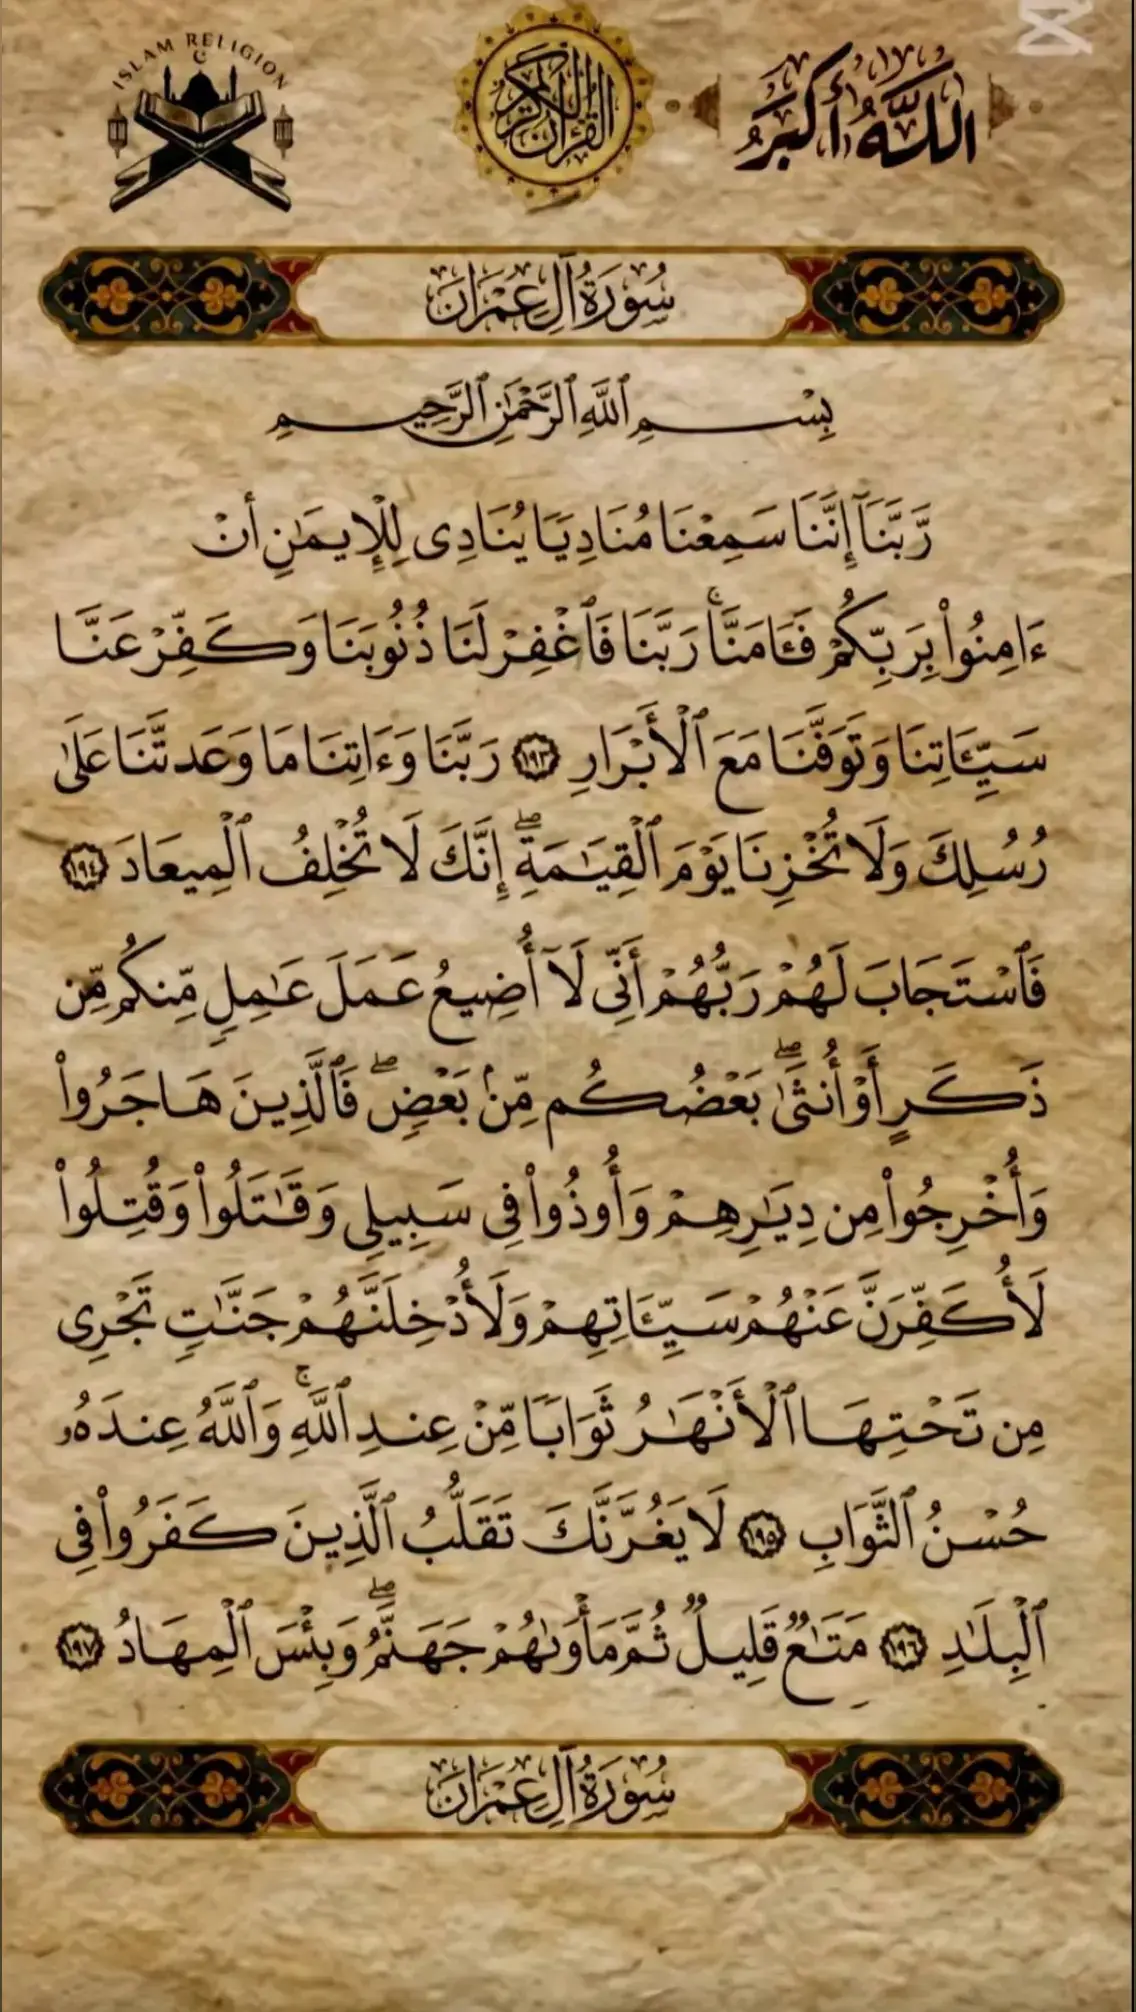 ISLAM RELIGION
القرآن الكريم
اللَّهُ أَكْبَرُ
سُورَةُ آلِ عِمْرَانَ
بِسْمِ ٱللَّهِ ٱلرَّحْمَٰنِ ٱلرَّحِيمِ
رَّبَّنَآ إِنَّنَا سَمِعْنَا مُنَادِيًا يُنَادِى لِلْإِيمَٰنِ أَنْ
ءَامِنُوا۟ بِرَبِّكُمْ فَـَٔامَنَّا ۚ رَبَّنَا فَٱغْفِرْ لَنَا ذُنُوبَنَا وَكَفِّرْ عَنَّا
سَيِّـَٔاتِنَا وَتَوَفَّنَا مَعَ ٱلْأَبْرَارِ ١٩٣ رَبَّنَا وَءَاتِنَا مَا وَعَدتَّنَا عَلَىٰ
رُسُلِكَ وَلَا تُخْزِنَا يَوْمَ ٱلْقِيَٰمَةِ ۖ إِنَّكَ لَا تُخْلِفُ ٱلْمِيعَادَ ١٩٤
فَٱسْتَجَابَ لَهُمْ رَبُّهُمْ أَنِّى لَآ أُضِيعُ عَمَلَ عَٰمِلٍ مِّنكُم مِّن
ذَكَرٍ أَوْ أُنثَىٰ ۖ بَعْضُكُم مِّنۢ بَعْضٍ ۖ فَٱلَّذِينَ هَاجَرُوا۟
وَأُخْرِجُوا۟ مِن دِيَٰرِهِمْ وَأُوذُوا۟ فِى سَبِيلِى وَقَٰتَلُوا۟ وَقُتِلُوا۟
لَأُكَفِّرَنَّ عَنْهُمْ سَيِّـَٔاتِهِمْ وَلَأُدْخِلَنَّهُمْ جَنَّٰتٍ تَجْرِى
مِن تَحْتِهَا ٱلْأَنْهَٰرُ ثَوَابًا مِّنْ عِندِ ٱللَّهِ ۚ وَٱللَّهُ عِندَهُۥ
حُسْنُ ٱلثَّوَابِ ١٩٥ لَا يَغُرَّنَّكَ تَقَلُّبُ ٱلَّذِينَ كَفَرُوا۟ فِى
ٱلْبِلَٰدِ ١٩٦ مَتَٰعٌ قَلِيلٌ ثُمَّ مَأْوَىٰهُمْ جَهَنَّمُ ۖ وَبِئْسَ ٱلْمِهَادُ ١٩٧
سُورَةُ آلِ عِمْرَانَ